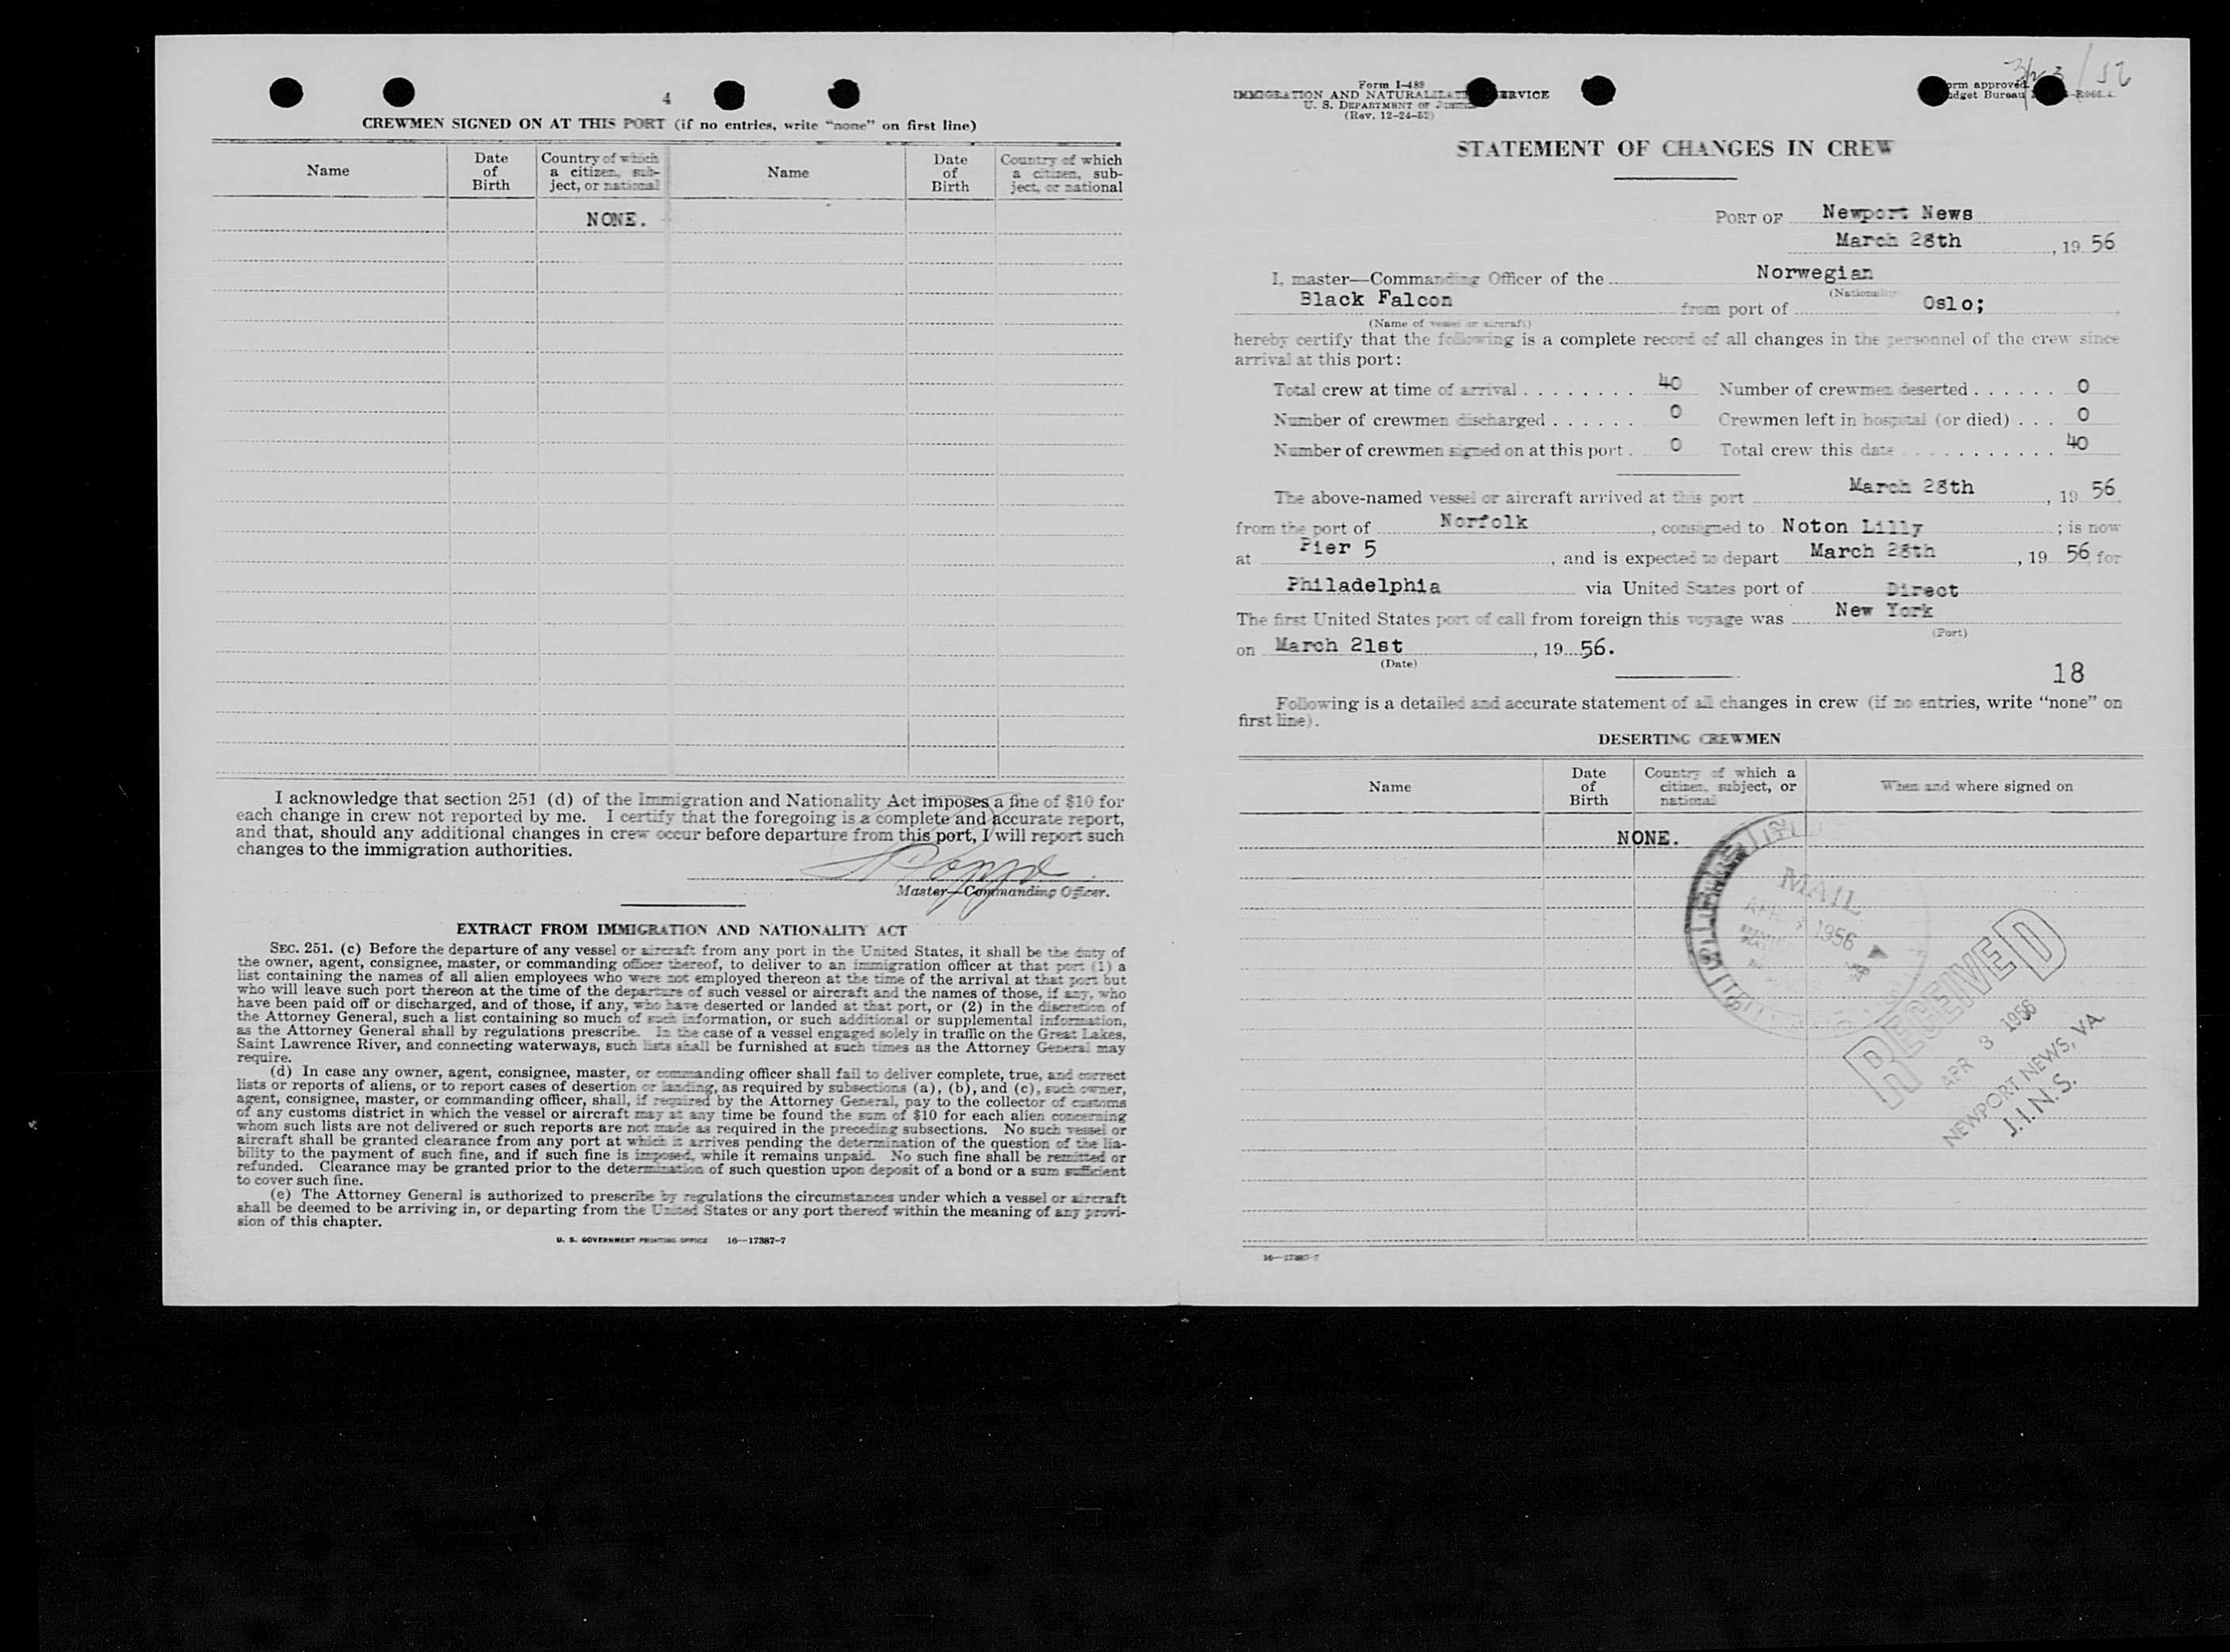 4
CREWMEN SIGNED ON AT THIS PORT (if no entries, write “none” on first line)
Name
Date of Birth
Country of which a citizen, sub-ject, or national
Name
Date of Birth
Country of which a citizen, sub-ject, or national
NONE.
I acknowledge that section 251 (d) of the Immigration and Nationality Act imposes a fine of $10 for
each change in crew not reported by me. I certify that the foregoing is a complete and accurate report,
and that, should any additional changes in crew occur before departure from this port, I will report such
changes to the immigration authorities.
Master—Commanding Officer.
EXTRACT FROM IMMIGRATION AND NATIONALITY ACT
SEC. 251. (c) Before the departure of any vessel or aircraft from any port in the United States, it shall be the duty of
the owner, agent, consignee, master, or commanding officer thereof, to deliver to an immigration officer at that port (1) a
list containing the names of all alien employees who were not employed thereon at the time of the arrival at that port but
who will leave such port thereon at the time of the departure of such vessel or aircraft and the names of those, if any, who
have been paid off or discharged, and of those, if any, who have deserted or landed at that port, or (2) in the discretion of
the Attorney General, such a list containing so much of such information, or such additional or supplemental information,
as the Attorney General shall by regulations prescribe. In the case of a vessel engaged solely in traffic on the Great Lakes,
Saint Lawrence River, and connecting waterways, such lists shall be furnished at such times as the Attorney General may
require.
(d) In case any owner, agent, consignee, master, or commanding officer shall fail to deliver complete, true, and correct
lists or reports of aliens, or to report cases of desertion or landing, as required by subsections (a), (b), and (c), such owner,
agent, consignee, master, or commanding officer, shall, if required by the Attorney General, pay to the collector of customs
of any customs district in which the vessel or aircraft may at any time be found the sum of $10 for each alien concerning
whom such lists are not delivered or such reports are not made as required in the preceding subsections. No such vessel or
aircraft shall be granted clearance from any port at which it arrives pending the determination of the question of the lia-
bility to the payment of such fine, and if such fine is imposed, while it remains unpaid. No such fine shall be remitted or
refunded. Clearance may be granted prior to the determination of such question upon deposit of a bond or a sum sufficient
to cover such fine.
(e) The Attorney General is authorized to prescribe by regulations the circumstances under which a vessel or aircraft
shall be deemed to be arriving in, or departing from the United States or any port thereof within the meaning of any provi-
sion of this chapter.
U. S. GOVERNMENT PRINTING OFFICE 16—17387-7
Form I-489
IMMIGRATION AND NATURALIZATION SERVICE
U. S. DEPARTMENT OF JUSTICE
(Rev. 12-24-52)
3/23/56
orm approved.
dget Bureau
STATEMENT OF CHANGES IN CREW
PORT OF Newport News
March 28th, 19 56
I, master—Commanding Officer of the Norwegian
(Nationality)
Black Falcon from port of Oslo;
(Name of vessel or aircraft)
hereby certify that the following is a complete record of all changes in the personnel of the crew since
arrival at this port:
Total crew at time of arrival 40 Number of crewmen deserted 0
Number of crewmen discharged 0 Crewmen left in hospital (or died) 0
Number of crewmen signed on at this port 0 Total crew this date 40
The above-named vessel or aircraft arrived at this port March 28th, 19 56,
from the port of Norfolk, consigned to Noton Lilly; is now
at Pier 5, and is expected to depart March 28th, 19 56, for
Philadelphia via United States port of Direct
The first United States port of call from foreign this voyage was New York
(Port)
on March 21st, 19 56.
(Date)
18
Following is a detailed and accurate statement of all changes in crew (if no entries, write “none” on
first line).
DESERTING CREWMEN
Name
Date of Birth
Country of which a citizen, subject, or national
When and where signed on
NONE.
MAIL
APR 1956
RECEIVED
APR 3 1956
NEWPORT NEWS, VA
I.I.N.S.
16—17387-7